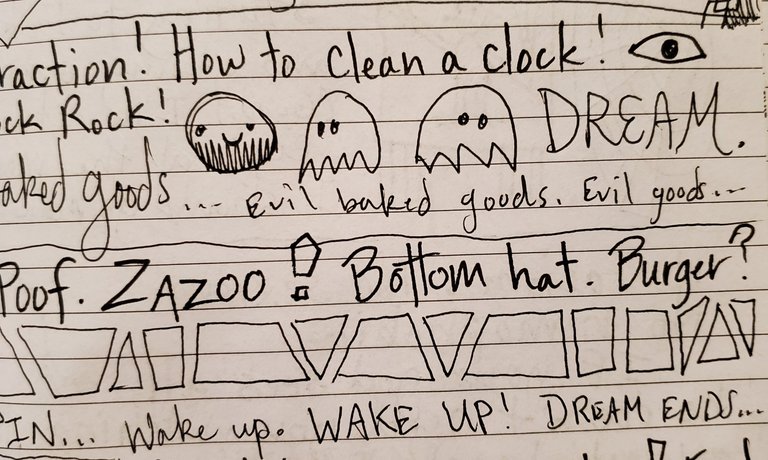 raction! How to clean a clock!
ck Rock! DREAM.
aked goods... Evil baked goods. Evil goods...
Poof. ZAZOO! Bottom hat. Burger?
IN... Wake up. WAKE UP! DREAM ENDS...